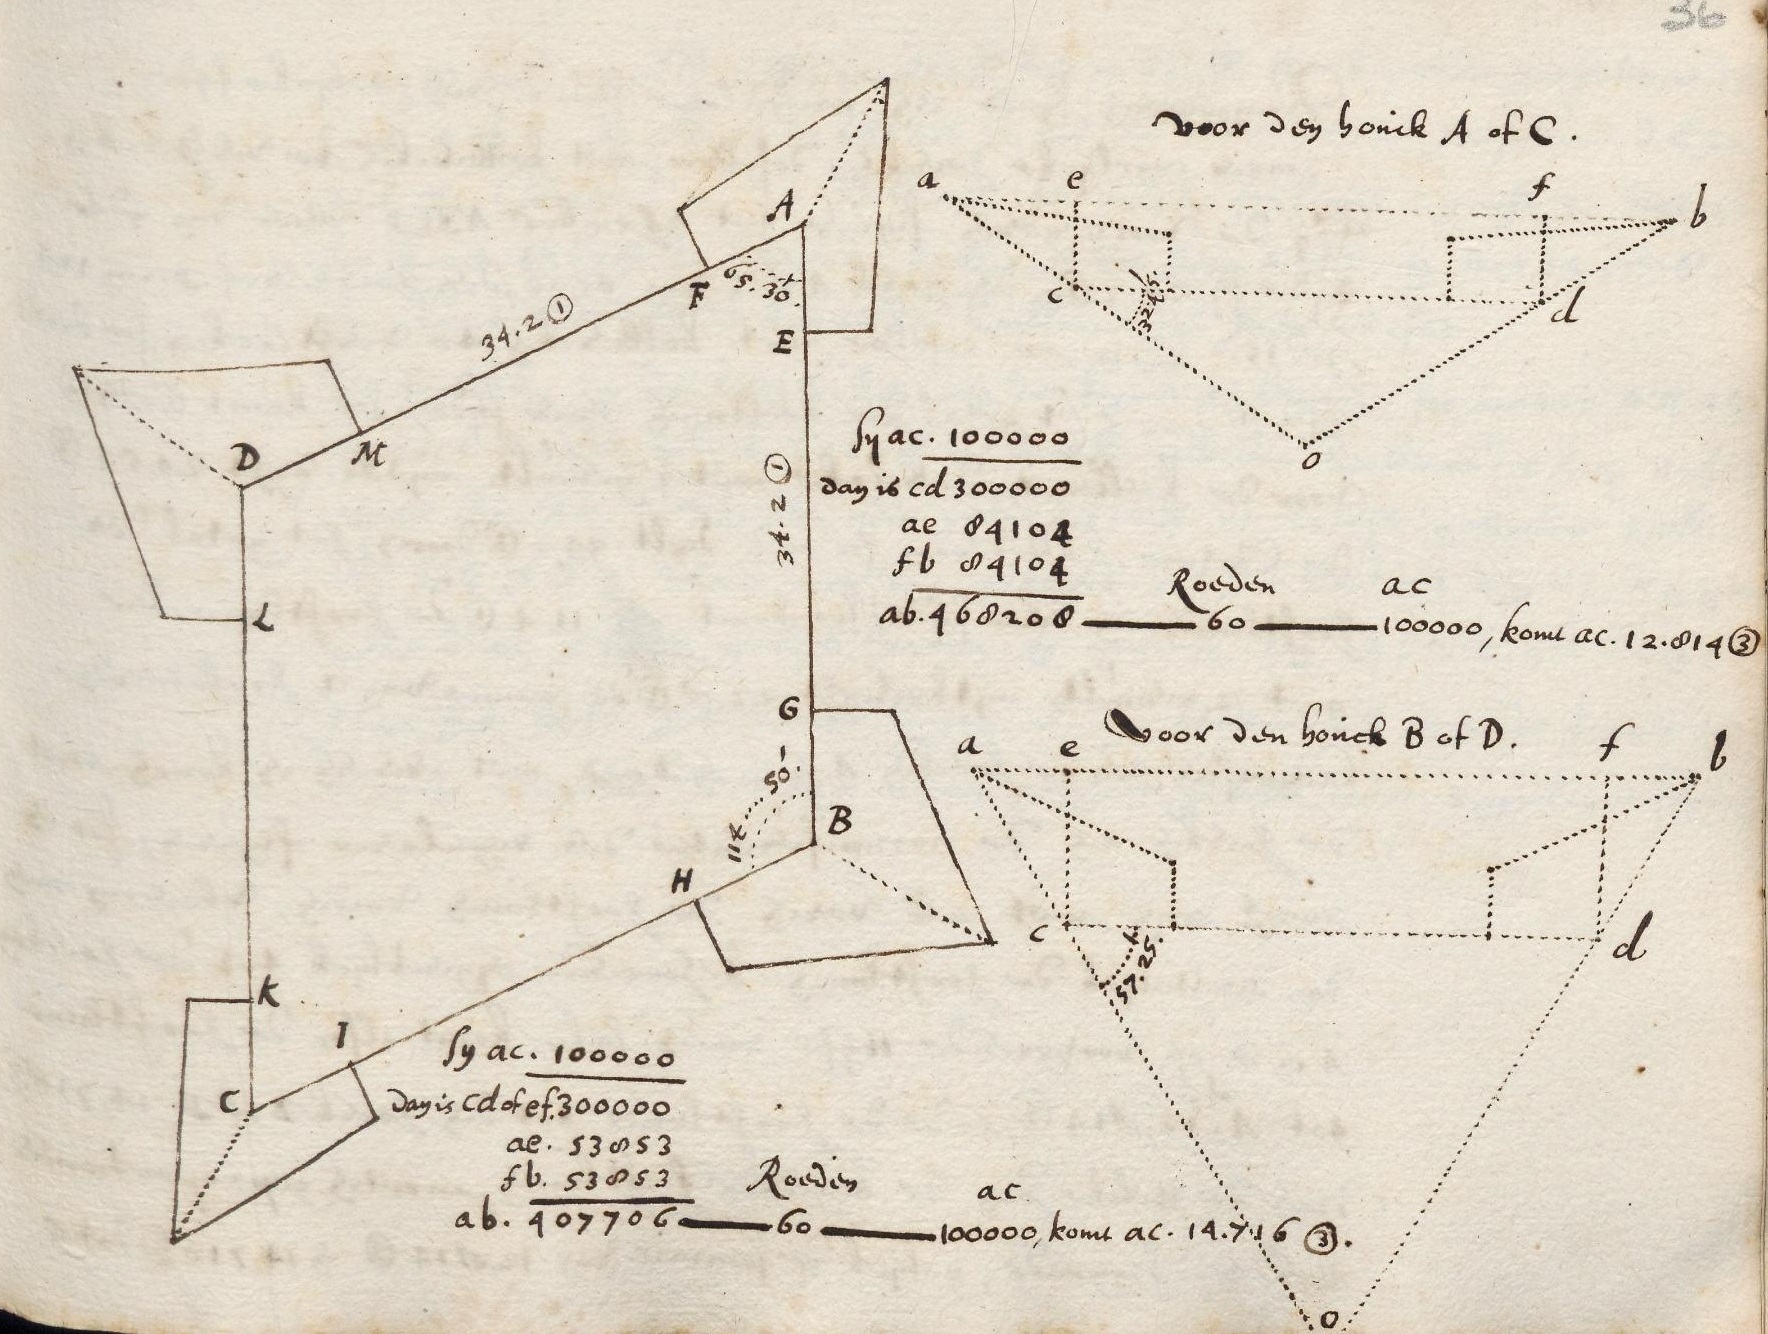 36
voor den houck A of C.
a e f b
c d
32.45.
o
A
F 65.30.
E
34.2①
D M
L
34.2①
Sy ac. 100000
dan is cd 300000
ae 84104
fb 84104
Roeden ac
ab. 468208 — 60 — 100000, komt ac. 12.814③
G
voor den houck B of D.
a e f b
114 50.
B
H
c d
57.25.
K
I
C
Sy ac. 100000
dan is cd of ef. 300000
ae. 53853
fb. 53853
Roeden ac
ab. 407706 — 60 — 100000, komt ac. 14.716③.
o